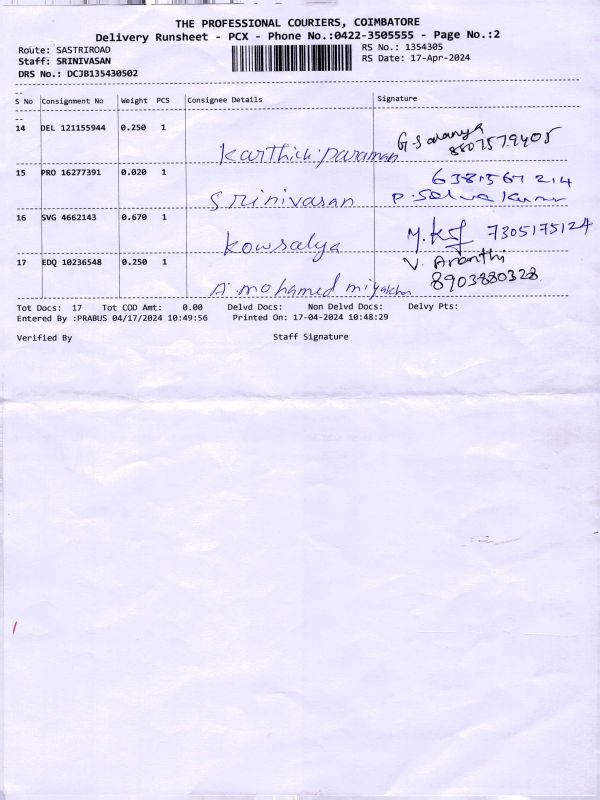 THE PROFESSIONAL COURIERS, COIMBATORE
Delivery Runsheet - PCX - Phone No.:0422-3505555 - Page No.:2
Route: SASTRIROAD RS No.: 1354305
Staff: SRINIVASAN RS Date: 17-Apr-2024
DRS No.: DCJB135430502
--
S No Consignment No Weight PCS Consignee Details Signature
--
14 DEL 121155944 0.250 1 Karthick.paraman G. Saranya 8807579405
15 PRO 16277391 0.020 1 Srinivasan 6381567214 P. Selva Kumar
16 SVG 4662143 0.670 1 Kowsalya 7305175124
17 EDQ 10236548 0.250 1 A. mohamed V. Ananthi 8903880328
Tot Docs: 17 Tot COD Amt: 0.00 Delvd Docs: Non Delvd Docs: Delvy Pts:
Entered By :PRABUS 04/17/2024 10:49:56 Printed On: 17-04-2024 10:48:29
Verified By Staff Signature